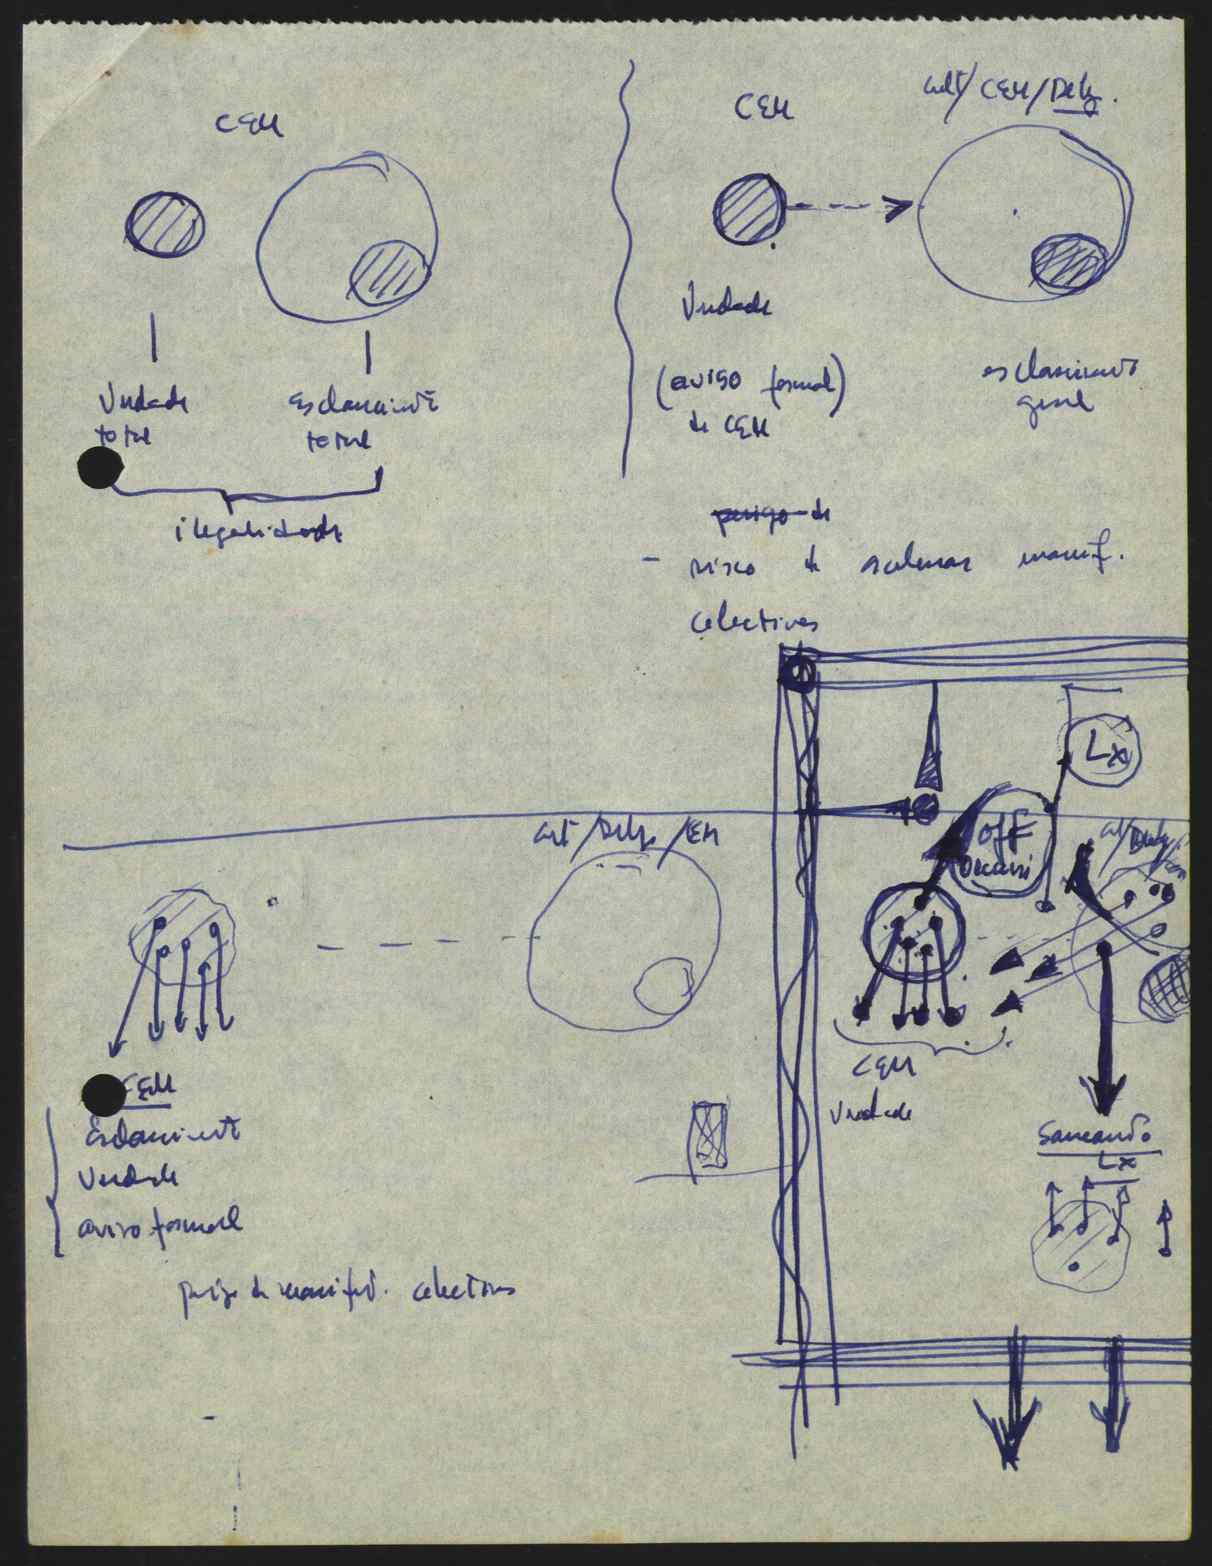 CEM
Verdade
total
Esclarecimento
total
ilegalidade
CEM
CEM/Deleg.
Verdade
(aviso formal)
de CEM
esclarecimento
geral
perigo de
- risco de acelerar manif.
colectivas
Lx
off
/Deleg./CEM
CEM
Verdade
Saneando
Lx
CEM
Esclarecimento
Verdade
aviso formal
perigo de manifest. colectivas